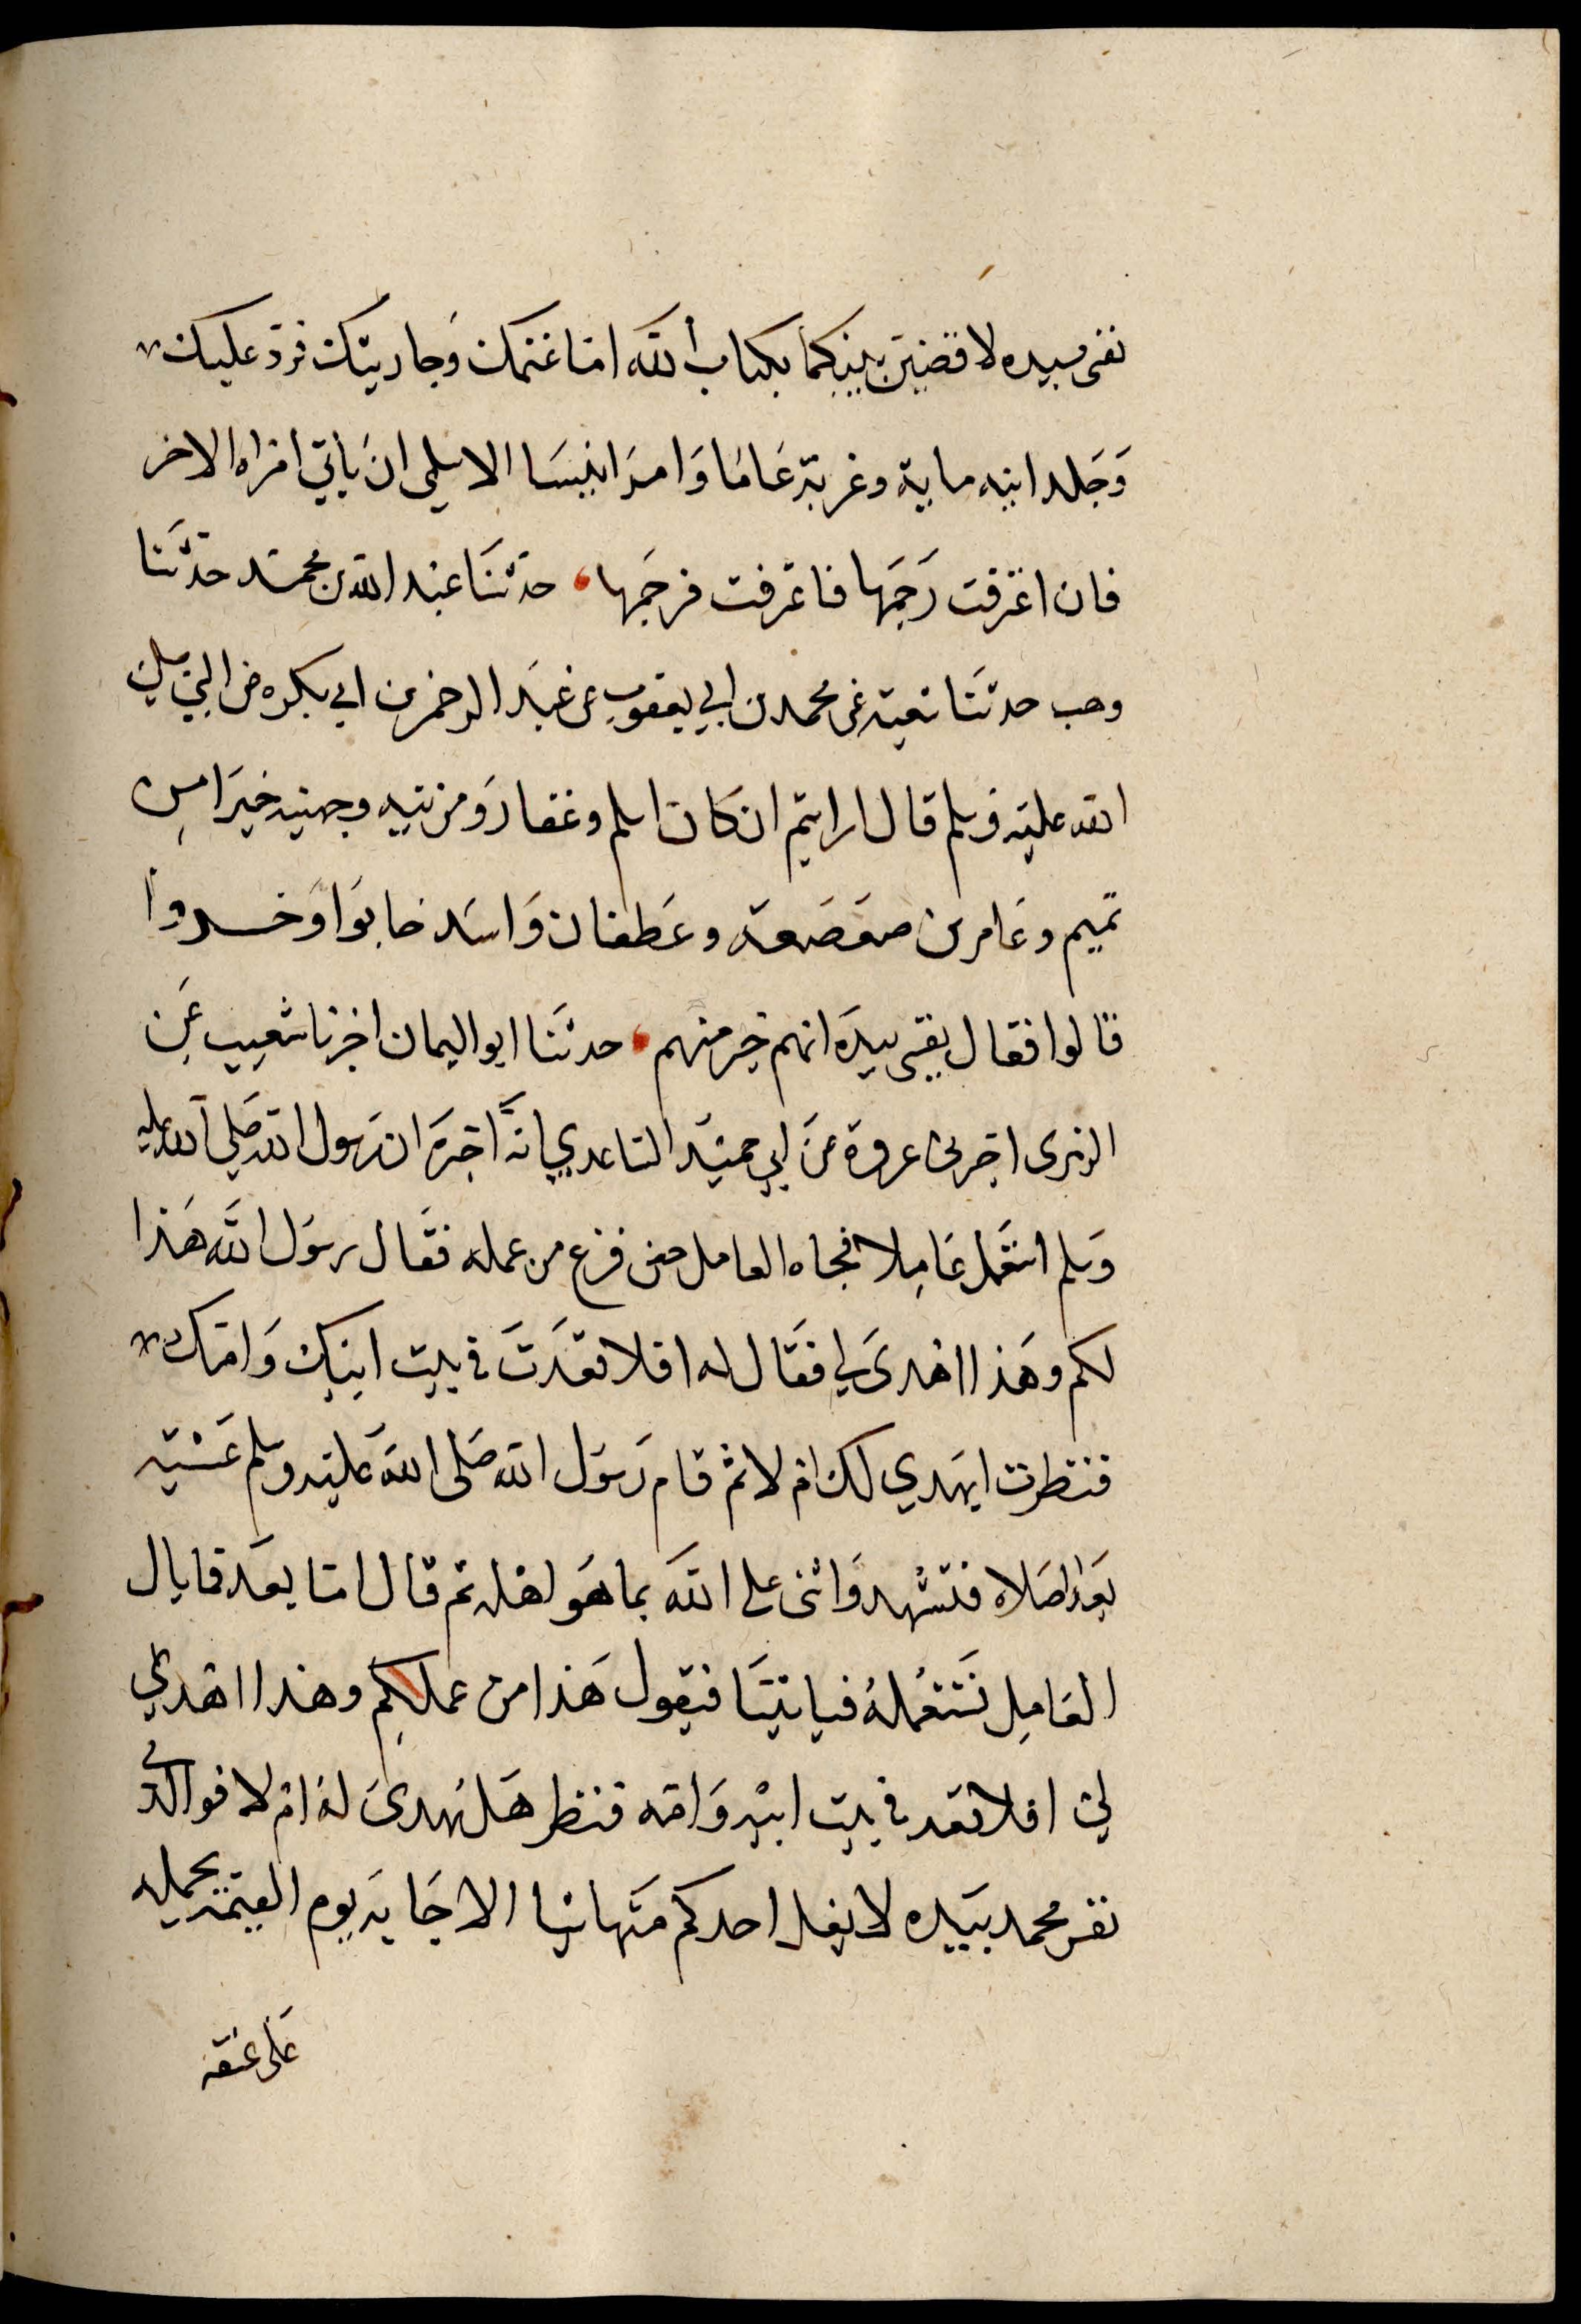 نفسى بيده لاقضين بينكما بكتاب الله اما غنمك وجاريتك فرد عليك
وجلد ابنه ماية وغربه عاما وامر انيسا الاسلمى ان ياتي امراه الاخر
فان اعترفت رجمها فاعترفت فرجمها، حدثنا عبد الله بن محمد حدثنا
وهب حدثنا شعبه عن محمد بن ابي يعقوب عن عبد الرحمن بن ابي بكره عن النبي صلى
الله عليه وسلم قال ارايتم ان كان اسلم وغفار ومزينه وجهينه خيرا من
تميم وعامر بن صعصعه وغطفان واسد خابوا وخسروا
قالوا فقال نفسى بيده انهم خير منهم، حدثنا ابو اليمان اخبرنا شعيب عن
الزهرى اخبرنى عروة عن ابي حميد الساعدي انه اخبره ان رسول الله صلى الله عليه
وسلم استعمل عاملا فجاه العامل حين فرغ من عمله فقال رسول الله هذا
لكم وهذا اهدى لي فقال له افلا قعدت في بيت ابيك وامك
فنظرت ايهدي لك ام لا ثم قام رسول الله صلى الله عليه وسلم عشيه
بعد الصلاه فتشهد واثنى على الله بما هو اهله ثم قال اما بعد فما بال
العامل نستعمله فياتينا فيقول هذا من عملكم وهذا اهدي
لي افلا قعد في بيت ابيه وامه فنظر هل يهدى له ام لا فوالذى
نفس محمد بيده لا يغل احدكم منها شيا الا جا به يوم القيمة يحمله
على عنقه